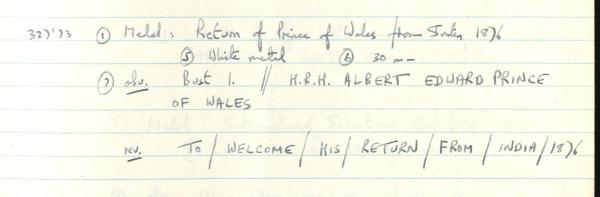 327'73 ① Medal: Return of Prince of Wales from India 1876
⑤ White metal ⑥ 30 m-
⑦ obv. Bust l. // H.R.H. ALBERT EDWARD PRINCE
OF WALES
rev. TO / WELCOME / HIS / RETURN / FROM / INDIA / 1876